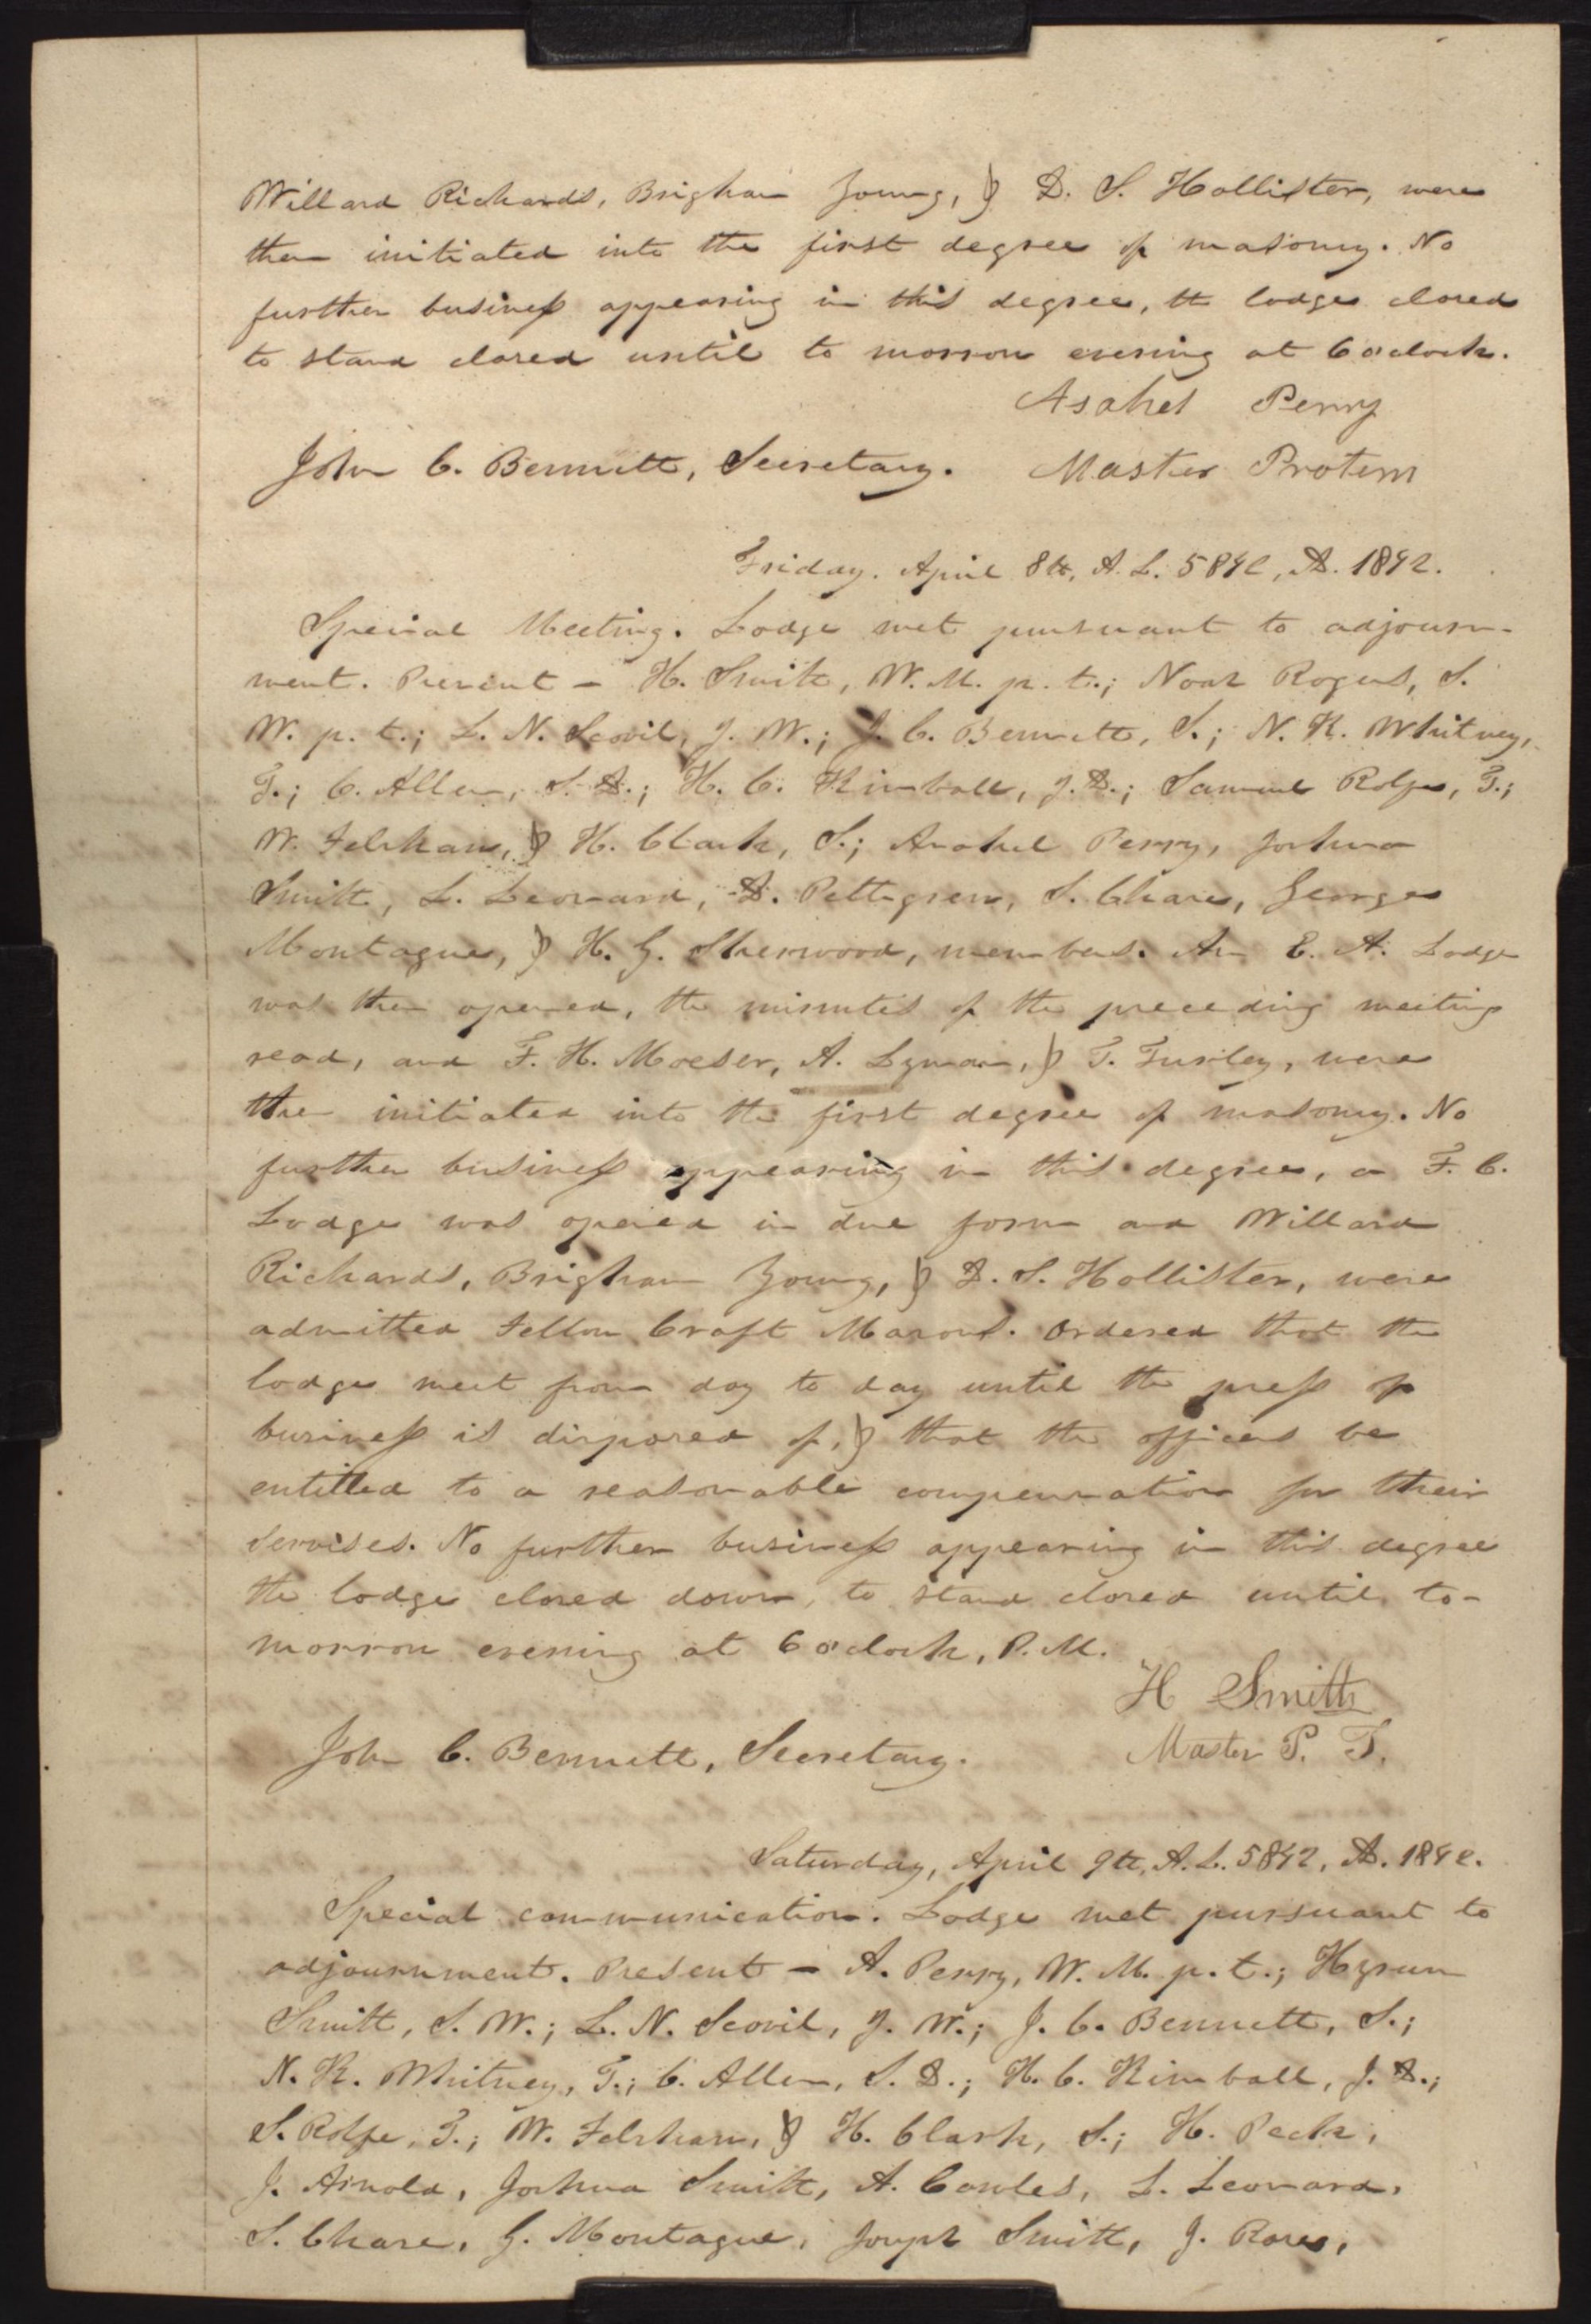 Willard Richards, Brigham Young, & D. S. Hollister, were
then initiated into the first degree of masonry. No
further business appearing in this degree, the lodge closed
to stand closed until to morrow evening at 6 o'clock.
Asahel Perry
John C. Bennett, Secretary. Master Protem
Friday. April 8th, A. L. 5842, A.D. 1842.
Special Meeting. Lodge met pursuant to adjourn-
ment. Present - H. Smith, W. M. p. t.; Noah Rogers, S.
W. p. t.; L. N. Scovil, J. W.; J. C. Bennett, S.; N. K. Whitney,
T.; C. Allen, S. D.; H. C. Kimball, J. D.; Samuel Rolfe, T.;
W. Felshaw, & H. Clark, S.; Asahel Perry, Joshua
Smith, L. Leonard, D. Pettegrew, S. Chase, George
Montague, & H. G. Sherwood, members. An E. A. Lodge
was then opened, the minutes of the preceding meeting
read, and F. H. Moeser, A. Lyman, & T. Turley, were
then initiated into the first degree of masonry. No
further business appearing in this degree, a F. C.
Lodge was opened in due form and Willard
Richards, Brigham Young, & D. S. Hollister, were
admitted Fellow Craft Masons. Ordered that the
lodge meet from day to day until the press of
business is disposed of, & that the officers be
entitled to a reasonable compensation for their
servises. No further business appearing in this degree
the lodge closed down, to stand closed until to-
morrow evening at 6 o'clock, P. M.
H Smith
John C. Bennett, Secretary. Master P. T.
Saturday, April 9th, A. L. 5842, A.D. 1842.
Special communication. Lodge met pursuant to
adjournment. Present - A. Perry, W. M. p. t.; Hyrum
Smith, S. W.; L. N. Scovil, J. W.; J. C. Bennett, S.;
N. K. Whitney, T.; C. Allen, S. D.; H. C. Kimball, J. D.;
S. Rolfe, T.; W. Felshaw, & H. Clark, S.; H. Peck,
J. Arnold, Joshua Smith, A. Cowles, L. Leonard,
S. Chase, G. Montague, Joseph Smith, J. Rose,